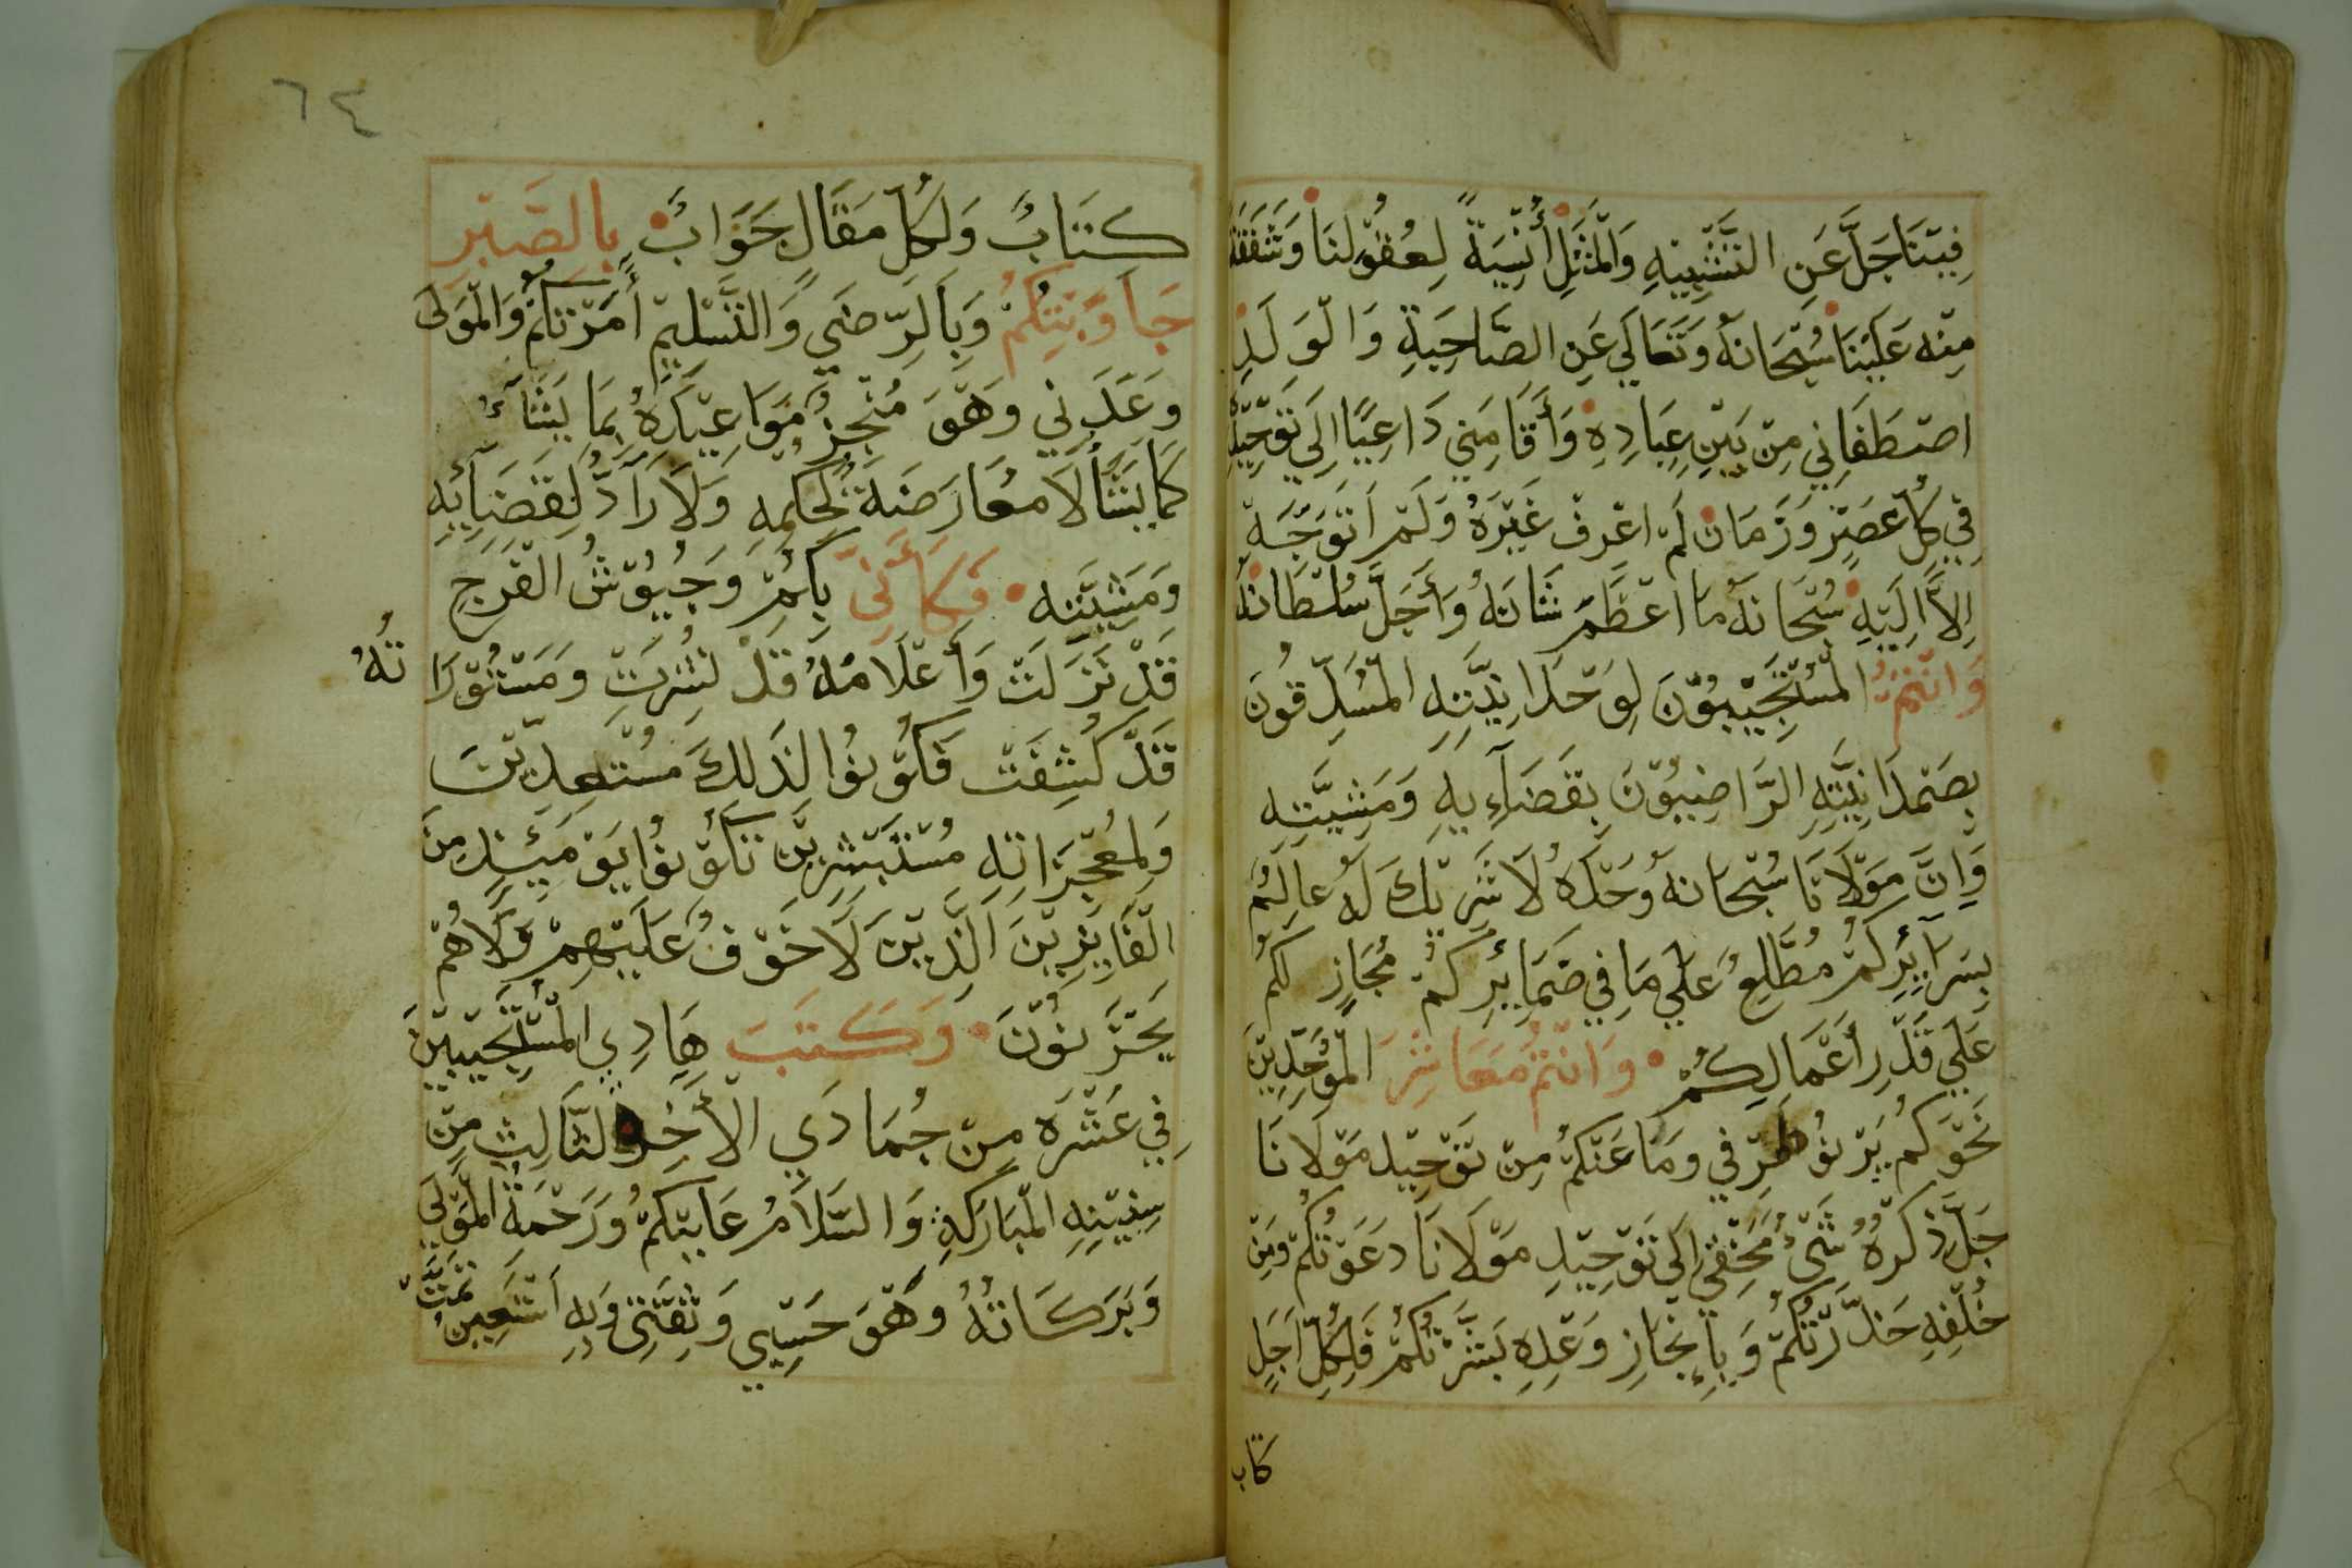 فِيْنَا جَلَّ عَنِ التَّشْبِيْهِ وَالْمَثَلِ أُنْسِيَةً لِعُقُوْلِنَا وَشَفَقَةً
مِنْه عَلَيْنَا سُبْحَانَهُ وَتَعَالَي عَنِ الصَّاحِبَةِ وَالْوَلَدِ
اصْطَفَانِي مِنْ بَيْنِ عِبَادِهِ وَأَقَامَنِي دَاعِيًا اِلَي تَوْحِيْدِهِ
فِي كُلِّ عَصْرٍ وَزَمَان لَمْ اعْرِفْ غَيْرَهُ وَلَمْ اَتَوَجَّهْ
اِلاَّ اِلَيْهِ سُبْحَانَهُ مَا اعْظَمَ شَانَهُ وَأَجَلَّ سُلْطَانَهُ
وَانْتُمْ الْمُسْتَجِيْبُوْنَ لِوَحْدَانِيَّتِهِ الْمُسَدِّقُونَ
بِصَمْدَانِيَّتِهِ الرَّاضِيُوْنَ بِقَضَآءِيهِ وَمَشِيَّتِه
وَاِنَّ مَوْلَانَا سُبْحَانَهُ وَحْدَهُ لَا شَرِيْكَ لَهُ عَالِمُ
بِسَرَآيِرِكُمْ مُطَّلِعُ عَلَي مَا فِي ضَمَايِرِكُمْ مُجَازٍ لَكُمْ
عَلَي قَدْرِ أَعْمَالِكُمْ وَانْتُمْ مَعَاشِرَ الْمُوَحِّدِيْنَ
نَحْوَكُمْ يَرْنُو طَرْفِي وَمَا عَنْكُمْ مِنْ تَوْحِيْدِ مَوْلَانَا
جَلَّ ذِكْرُهُ شَيْءُ مَخْفِيٌ اِلَي تَوْحِيْدِ مَوْلَانَا دَعَوْتُكُمْ وَمِنْ
خُلْفِهِ حَذَّرْتُكُمْ وَبِاِنْجَازِ وَعْدِهِ بَشَّرْتُكُمْ فَلِكُلِّ اَجَلٍ
كتاب
٦٤
كِتَابُ وَلِكُلِّ مَقَالٍ جَوَابُ بِالصَّبْرِ
جَاوَبْتُكُمْ وَبِالرِّضَي وَالتَّسْلِيْمِ أَمَرْتُكُمْ وَالْمَوْلَي
وَعَدَنِي وَهْوَ مُنْجِزُ مَوَاعِيْدَهُ بِمَا يَشَآءُ
كَمَا يَشَأُ لَا مُعَارَضَةَ لِحُكْمِهِ وَلَا رَآدَّ لِقَضَآئِهِ
وَمَشِيَّتِه فَكَأَنِّيْ بِكُمْ وَجُيُوْشُ الْفَرَجِ
قَدْ نَزَلَتْ وَأَعْلَامُهُ قَدْ نُشِرَتْ وَمَسْتُوْرَا تُهُ
قَدْ كُشِفَتْ فَكُوْنُوا لِذَلِكَ مُسْتَعِدِّيْنَ
وَلِمُعْجِزَاتِهِ مُسْتَبْشِرِيْنَ تَكُوْنُوْا يَوْمَئِذٍ مِنَ
الْفَايِزِيْنَ اَلَّذِيْنَ لَا خَوْفُ عَلَيْهِمْ وَلَا هُمْ
يَحْزَنُوْنَ وَكَتَبَ هَادِي الْمُسْتَجِيْبِيْنَ
فِي عَشْرَه مِنْ جُمَادَي الْأَخِرْ الثَالِثِ مِنْ
سِنِيْنِهِ الْمُبَارَكَةِ وَالسَّلَامُ عَلَيْكُمُ وَرَحْمَةُ الْمَوْلَي
وَبَرَكَاتُهُ وَهْوَ حَسْبِي وَثِقَتِي وَبِهِ اَسْتَعِيْنُ تَمَّتْ